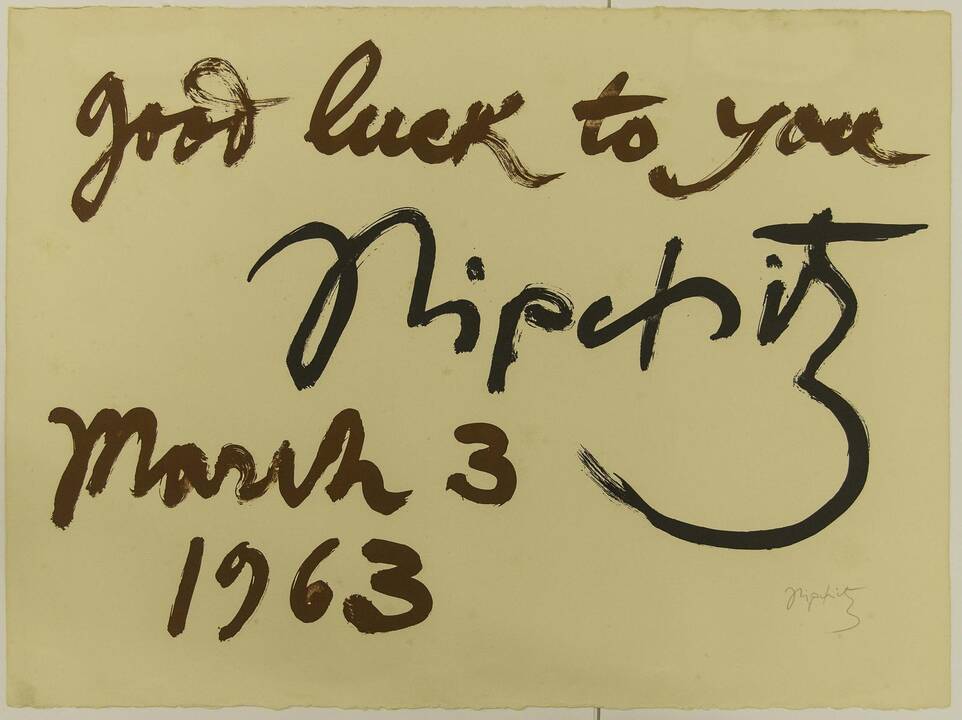 good luck to you
Lipchitz
March 3
1963
Lipchitz